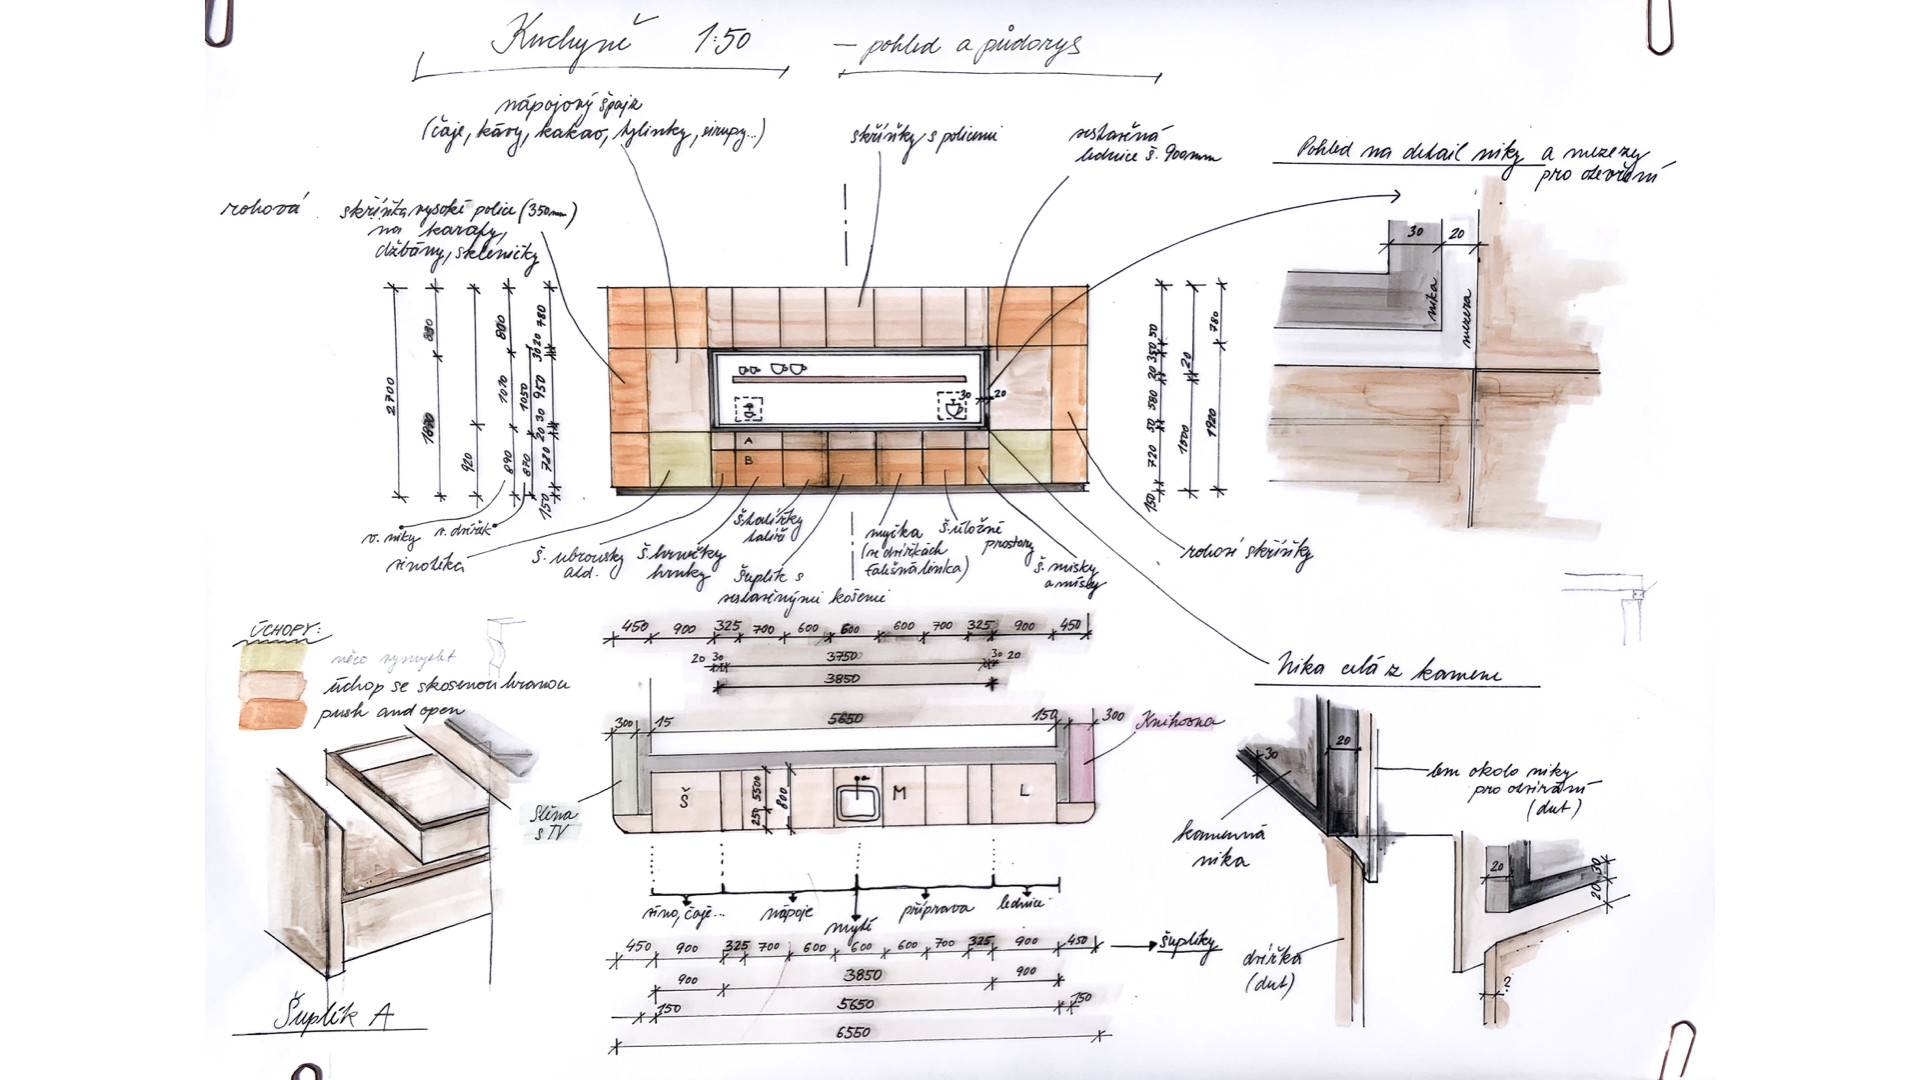 Kuchyně 1:50 – pohled a půdorys
nápojový špajz
(čaje, kávy, kakao, bylinky, sirupy...)
skříňky s policemi
vestavěná
lednice š. 900mm
Pohled na detail niky a mezery
pro otevření
rohová skříňka vysoké police (350mm)
na karafy,
džbány, skleničky
30
20
nika
mezera
2700
880
920
880
1070
890
1050
870
30 20 780
950
20 30
720
150
30
20
A
B
50
350
20
580
50
720
150
20
1500
780
1920
v. niky
v. dvířek
vinotéka
š. ubrousky
atd.
š. hrnečky
hrnky
š. talířky
talíře
šuplík s
vestavěnými košemi
myčka
(ve dvířkách
falešná linka)
š. úložné
prostory
š. misky
a mísy
rohové skříňky
450 900 325 700 600 600 600 700 325 900 450
20 30 3750 30 20
3850
ÚCHOPY:
něco vymyslet
úchop se skosenou hranou
push and open
Nika celá z kamene
300 15 5650 150 300
Knihovna
Stěna
s TV
Š
5500
250
800
M
L
30
20
lem okolo niky
pro otvírání
(dut)
kamenná
nika
20
30
20
víno, čaje...
nápoje
mytí
příprava
lednice
450 900 325 700 600 600 600 700 325 900 450
šuplíky
900 3850 900
150 5650 150
6550
dvířka
(dut)
?
Šuplík A